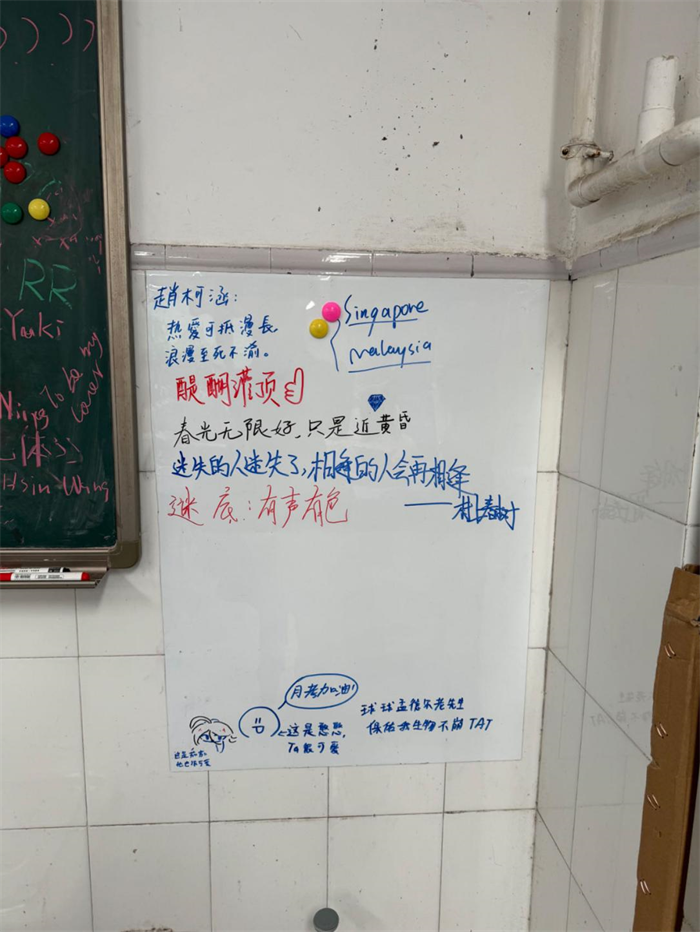 RR
Yanki
To be my
lover
Hsin Wing
趙柯涵：
热爱可抵漫長
浪漫至死不渝。
Singapore
malaysia
醍醐灌顶
春光无限好，只是近黄昏
迷失的人迷失了，相逢的人会再相逢
——村上春树
谜底：有声有色
月考加油！
←这是憨憨，
Ta很可爱
球球孟德尔老先生
保佑我生物不崩 TAT